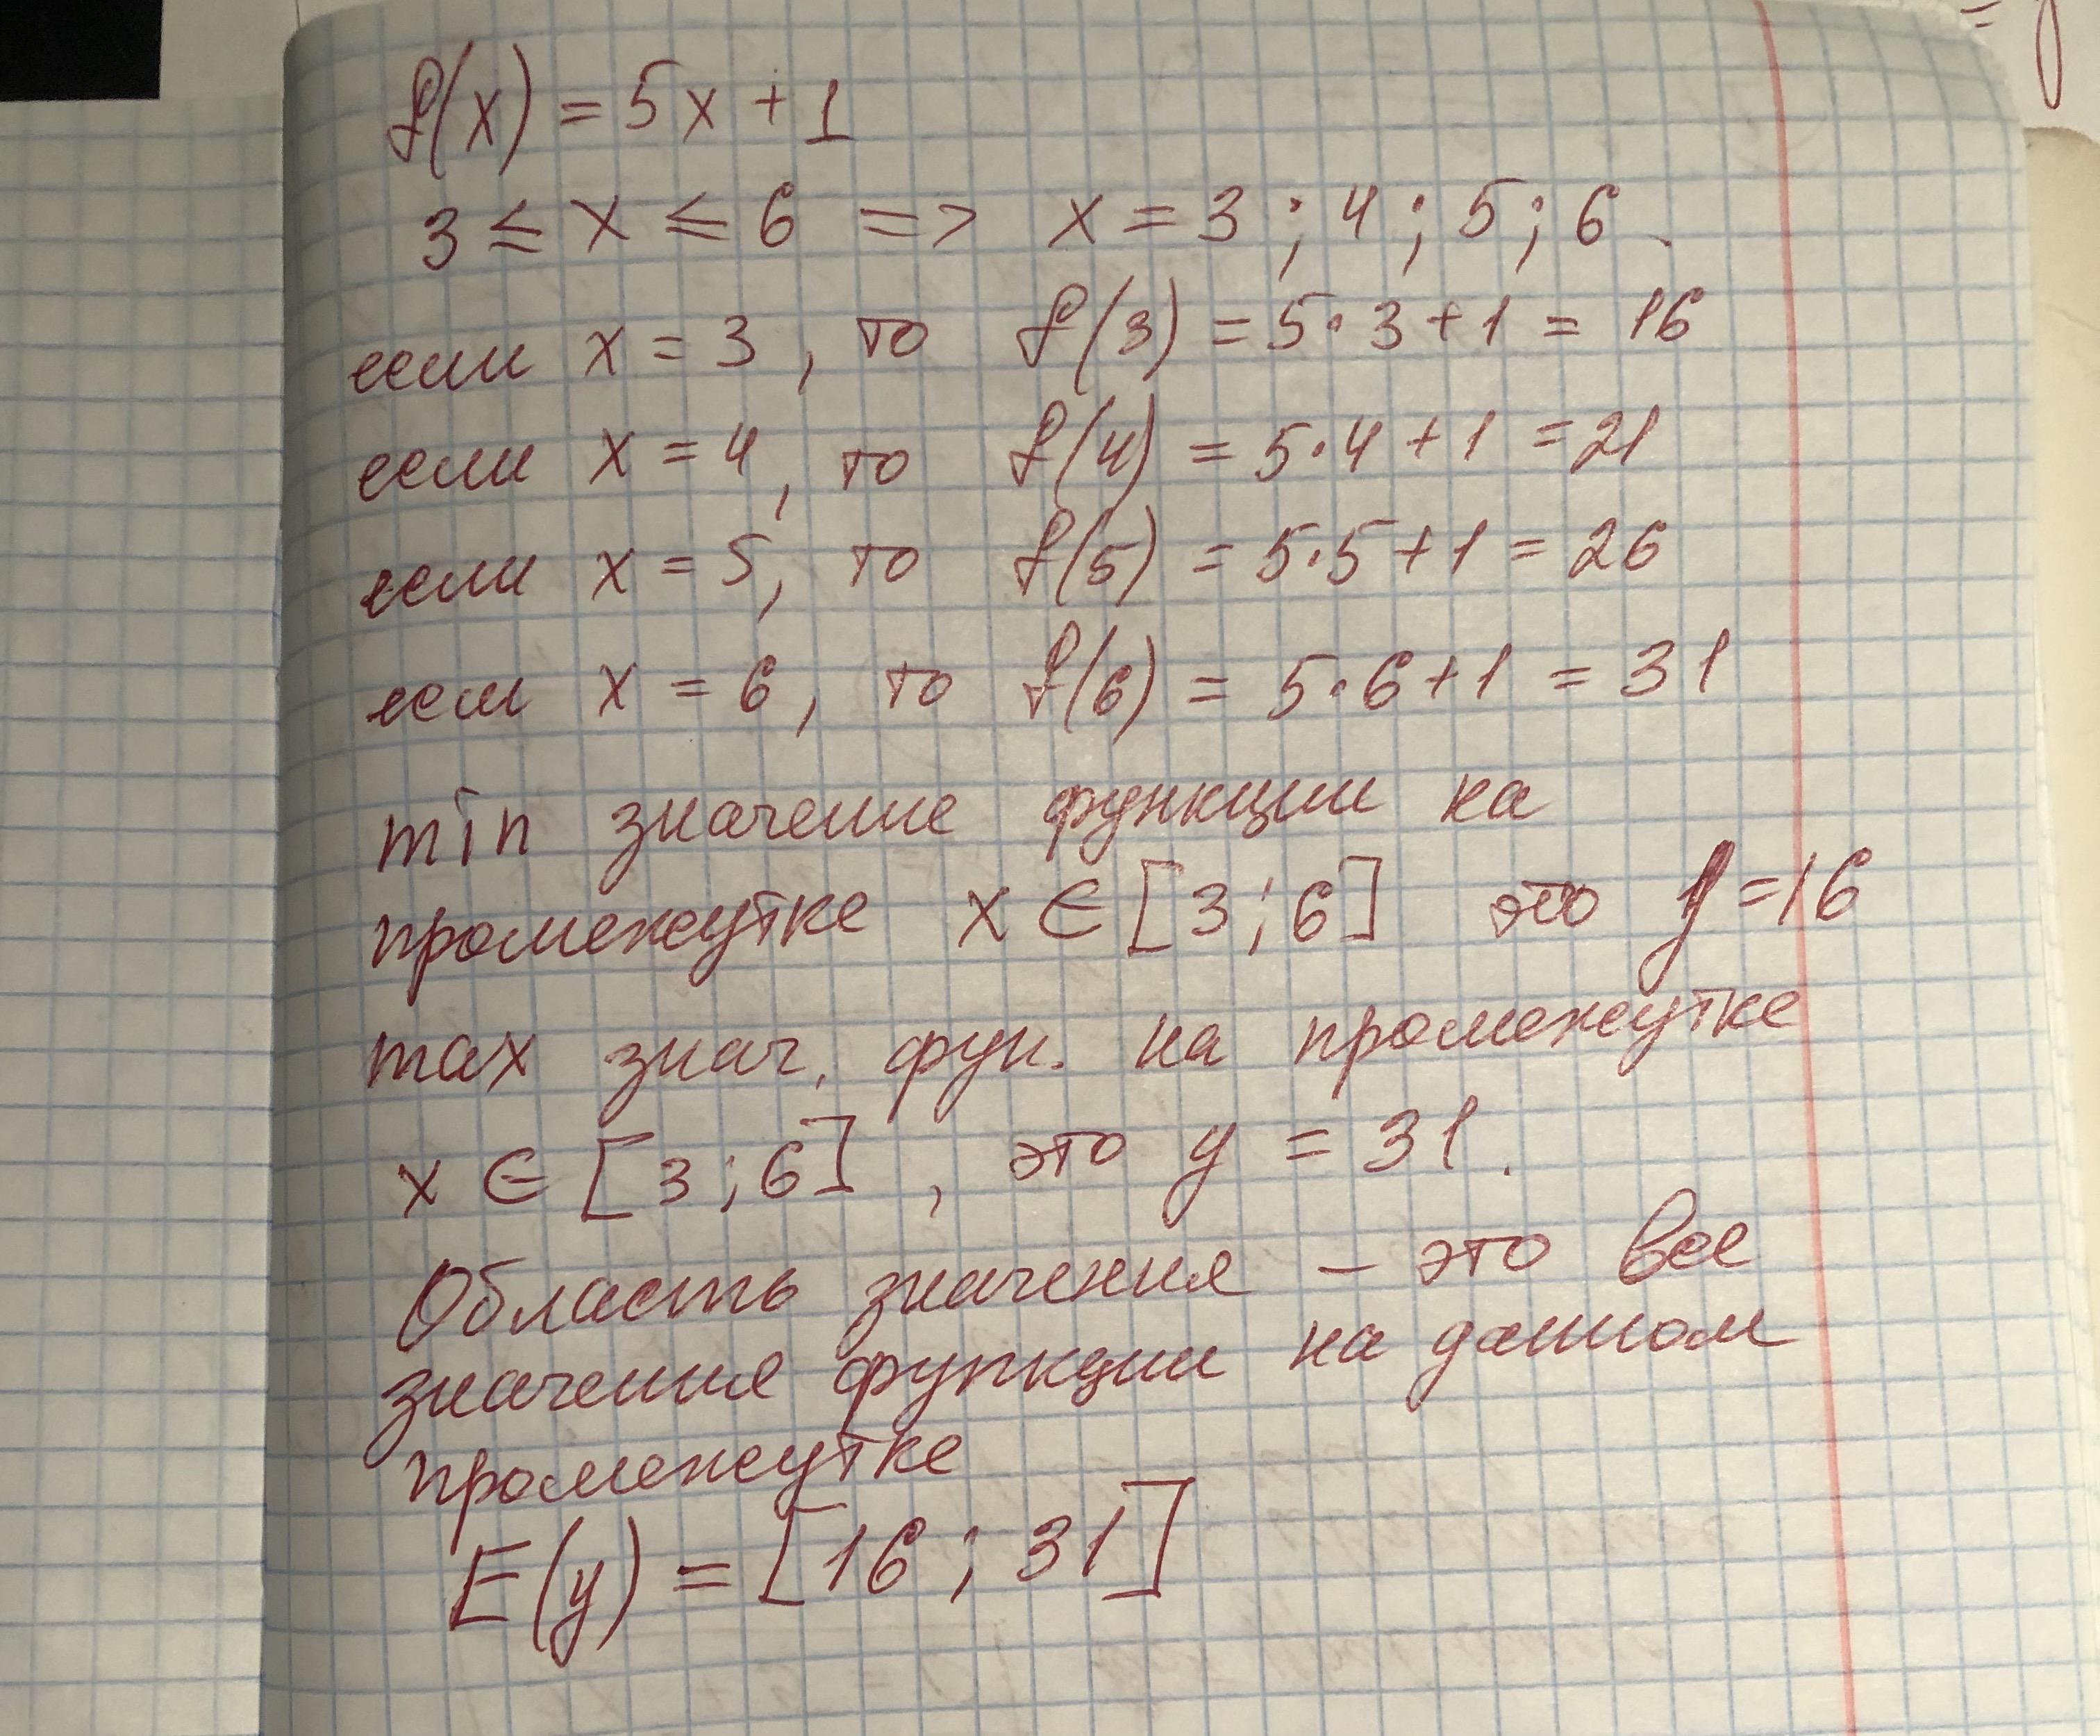 f(x) = 5x + 1
3 ≤ x ≤ 6 => x = 3 ; 4 ; 5 ; 6.
если x = 3, то f(3) = 5·3+1 = 16
если x = 4, то f(4) = 5·4+1 = 21
если x = 5, то f(5) = 5·5+1 = 26
если x = 6, то f(6) = 5·6+1 = 31
min значение функции на
промежутке x ∈ [3;6] это y = 16
max знач. фун. на промежутке
x ∈ [3;6], это y = 31.
Область значения – это все
значения функции на данном
промежутке
E(y) = [16 ; 31]